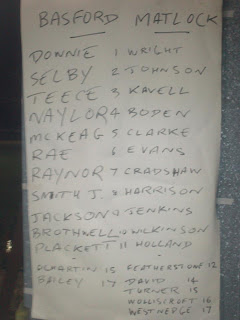 BASFORD MATLOCK
DONNIE 1 WRIGHT
SELBY 2 JOHNSON
TEECE 3 KAVELL
NAYLOR 4 BODEN
MCKEAG 5 CLARKE
RAE 6 EVANS
RAYNOR 7 CRADSHAW
SMITH J. 8 HARRISON
JACKSON 9 JENKINS
BROTHWELL 10 WILKINSON
PLACKETT 11 HOLLAND
15 FEATHERSTONE 12
BAILEY 17 DAVID 14
TURNER 15
WOLLISCROFT 16
WESTNEDGE 17